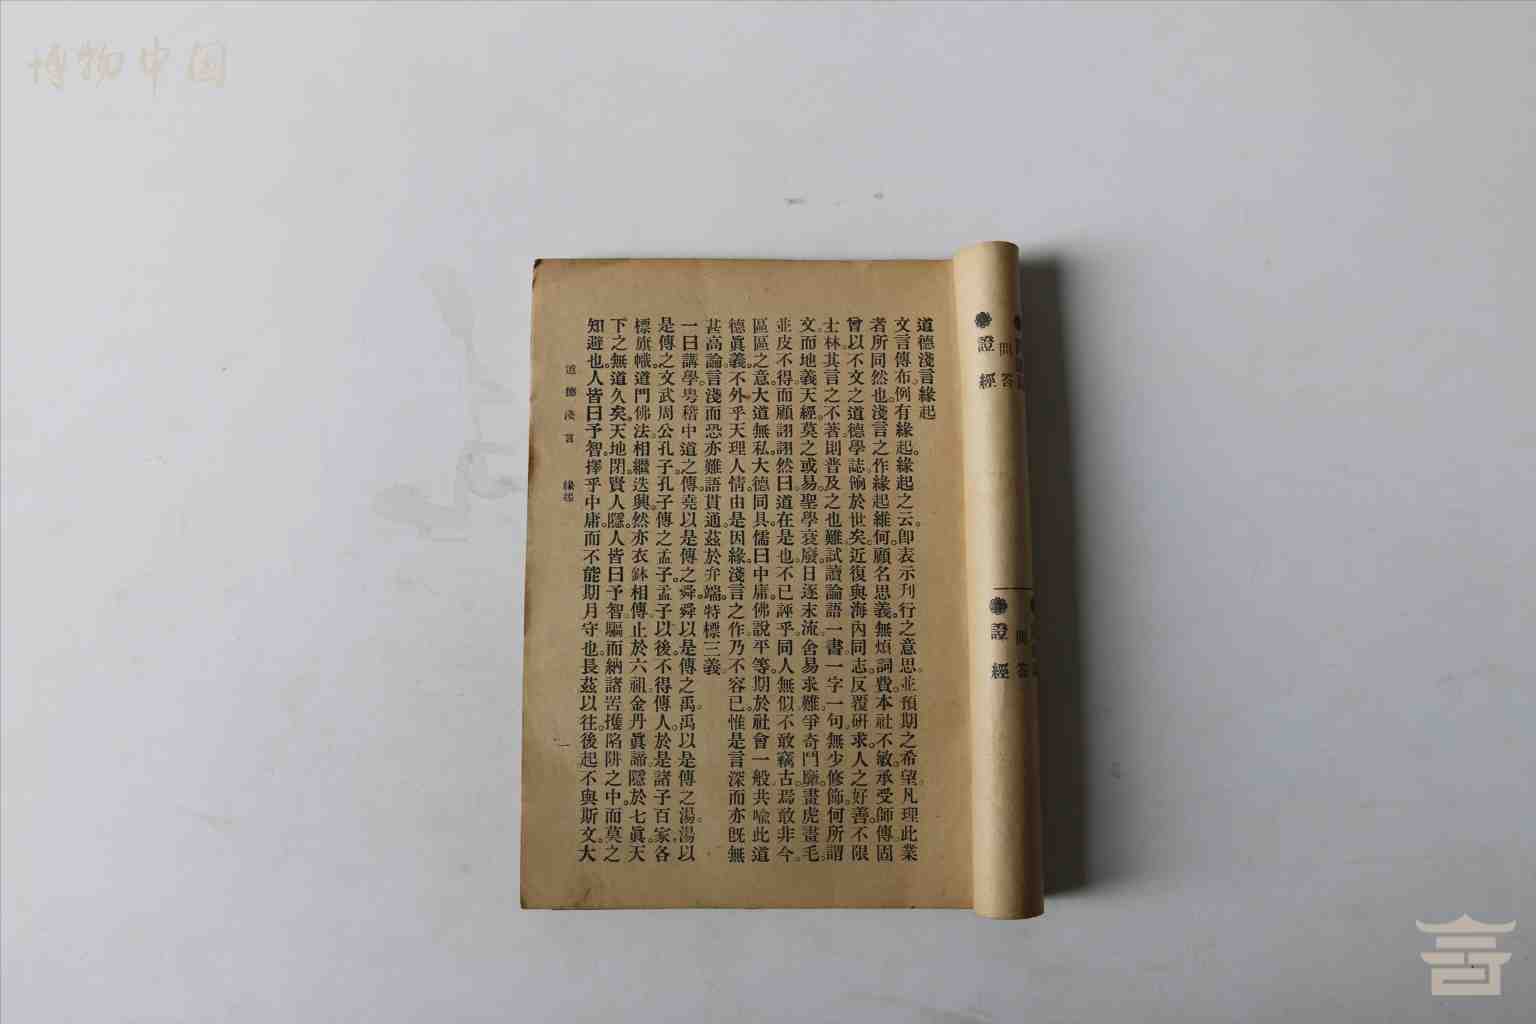 博物中国
證經
問答
證經
問答
道德淺言緣起
文言傳布。例有緣起。緣起之云。卽表示刋行之意思。並預期之希望。凡理此業
者所同然也。淺言之作。緣起維何。顧名思義。無煩詞費。本社不敏。承受師傳。固
曾以不文之道德學誌。餉於世矣。近復與海內同志。反覆硏求。人之好善。不限
士林。其言之不著。則普及之也難。試讀論語一書。一字一句。無少修飾。何所謂
文。而地義天經。莫之或易。聖學衰廢。日逐末流。舍易求難。爭奇鬥靡。畫虎畫毛。
並皮不得。而顧詡詡然曰。道在是也。不已誣乎。同人無似。不敢竊古。焉敢非今。
區區之意。大道無私。大德同具。儒曰中庸。佛說平等。期於社會一般共喩此道
德眞義。不外乎天理人情。由是因緣。淺言之作。乃不容已。惟是言深而亦旣無
甚高論。言淺而恐亦難語貫通。茲於弁端。特標三義。
一曰講學。粤稽中道之傳。堯以是傳之舜。舜以是傳之禹。禹以是傳之湯。湯以
是傳之文武周公孔子。孔子傳之孟子。孟子以後不得傳人。於是諸子百家。各
標旗幟。道門佛法。相繼迭興。然亦衣鉢相傳。止於六祖。金丹眞諦。隱於七眞。天
下之無道久矣。天地閉。賢人隱。人皆曰予智。驅而納諸罟擭陷阱之中。而莫之
知避也。人皆曰予智。擇乎中庸。而不能期月守也。長茲以往。後起不與斯文。大
道德淺言 緣起
一